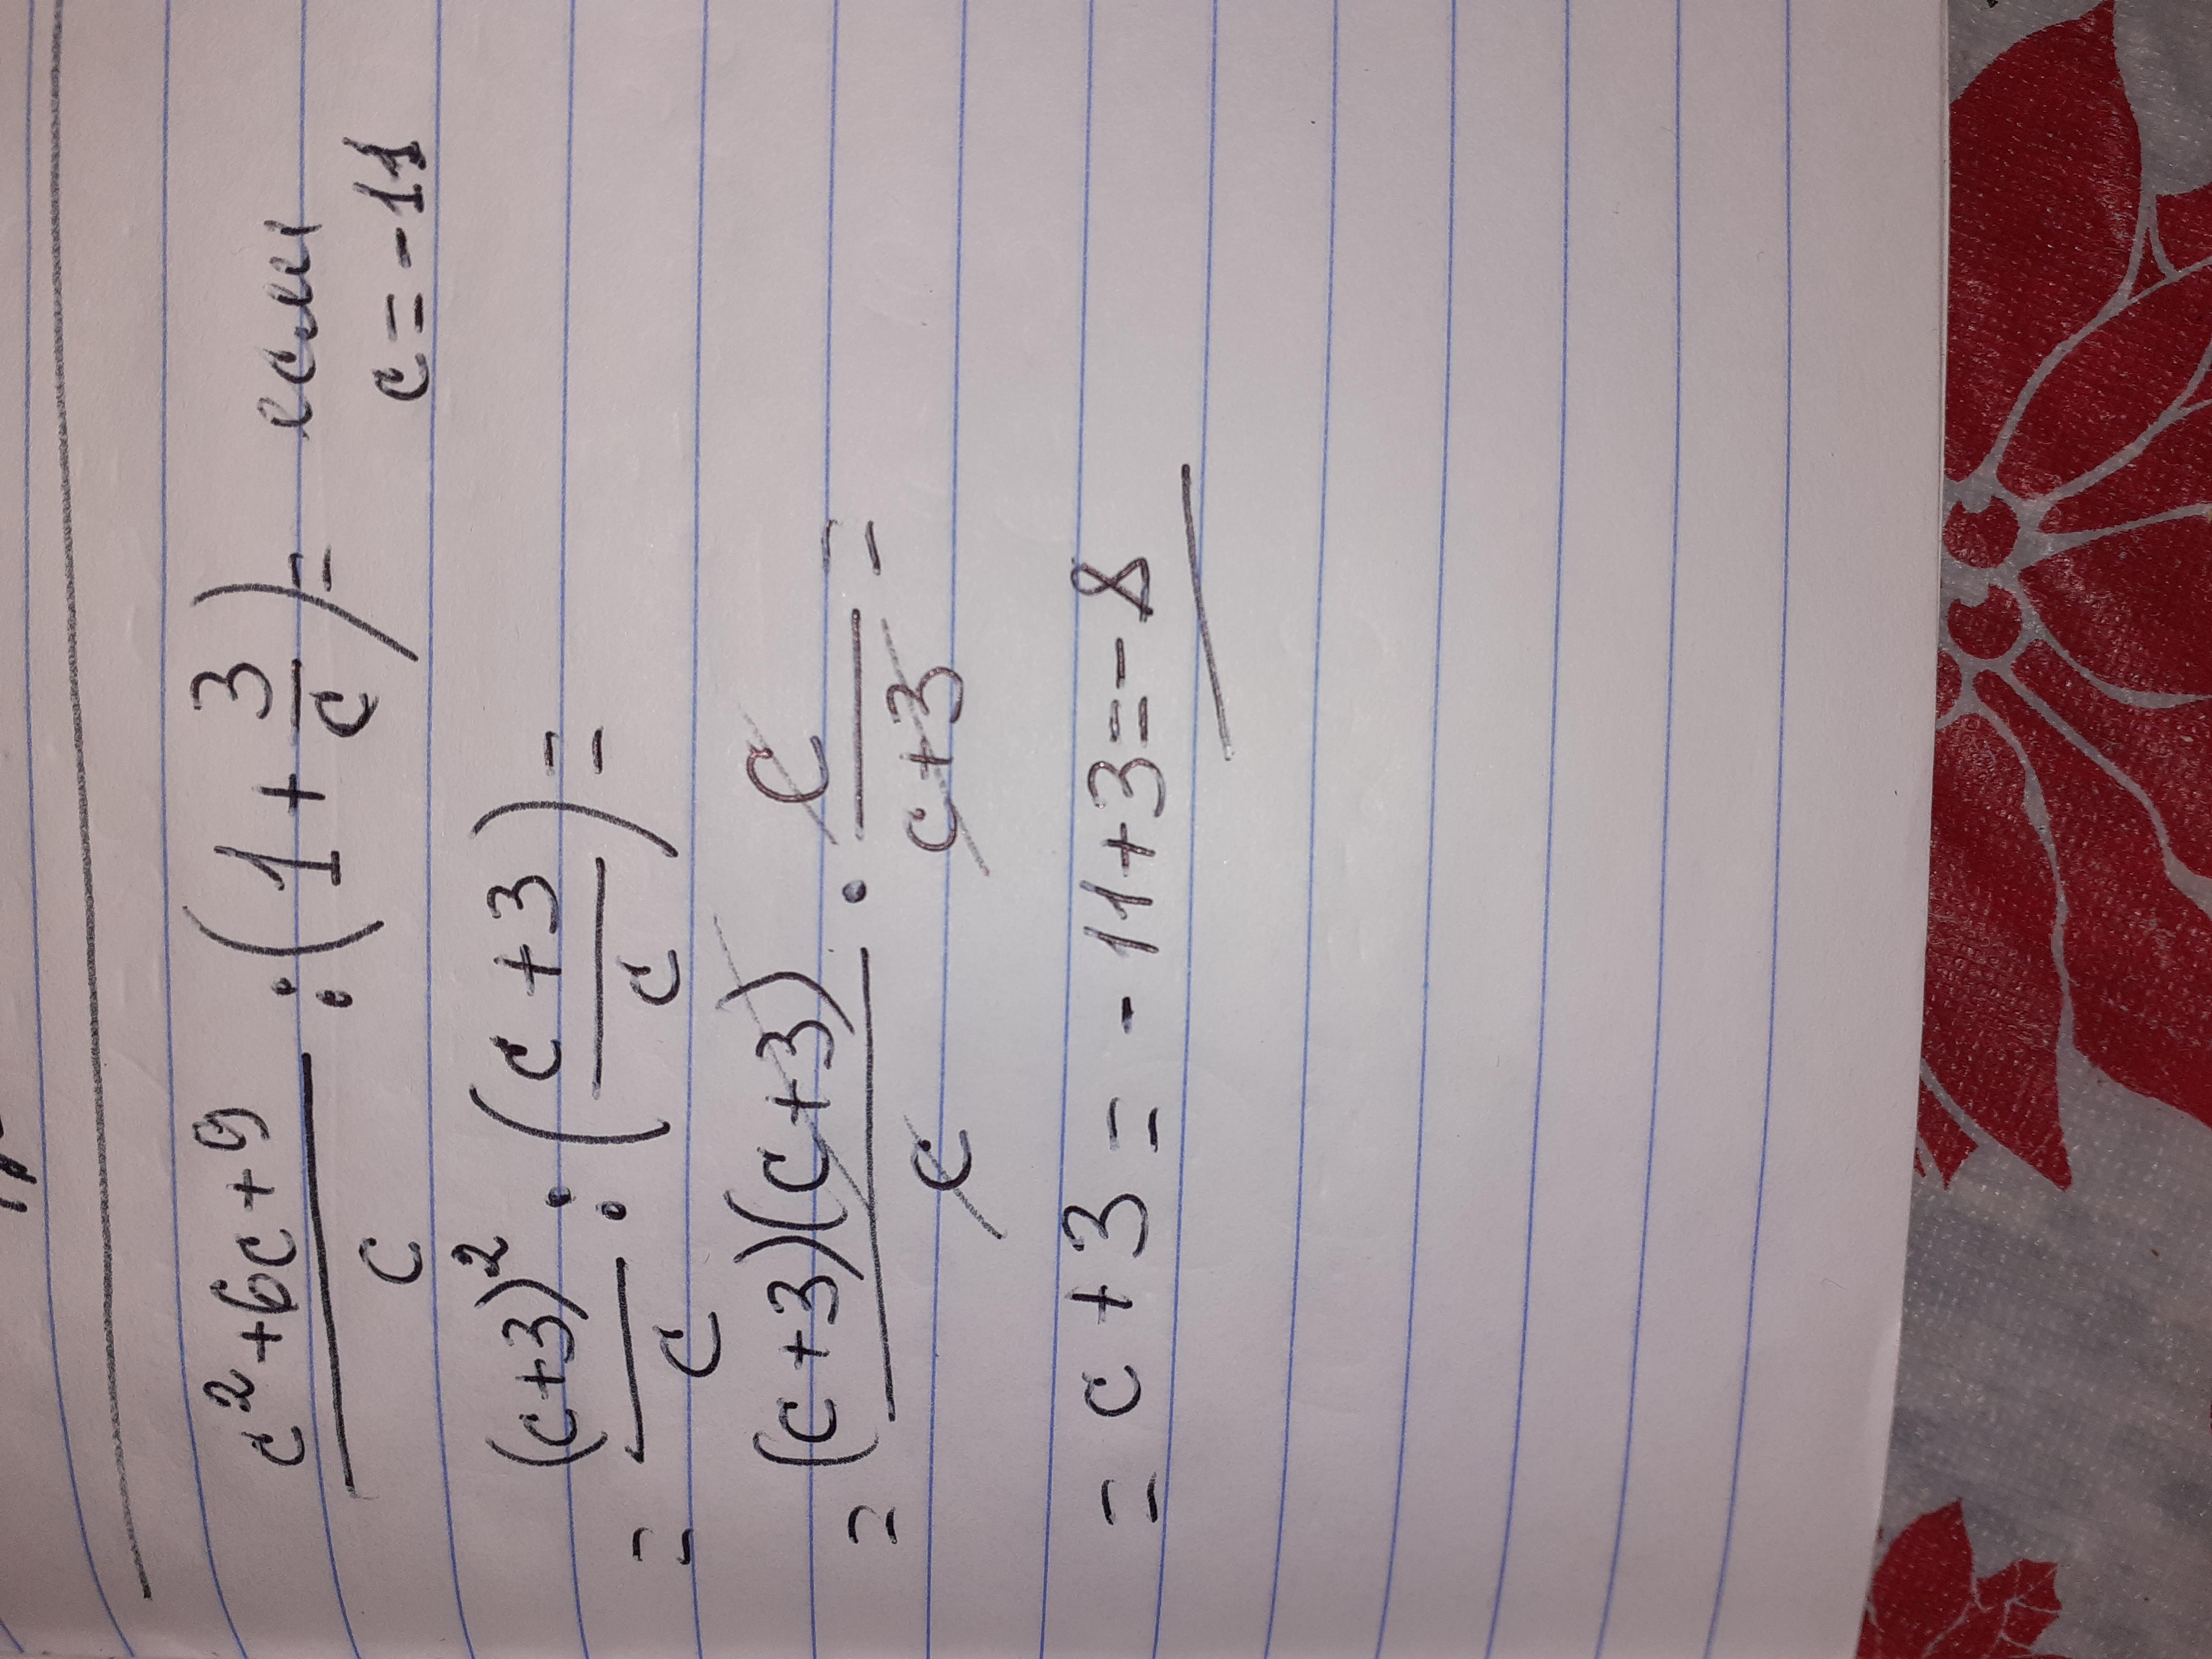 (c²+6c+9)/c : (1 + 3/c) = если
c = -11
= (c+3)²/c : ((c+3)/c) =
= (c+3)(c+3)/c · c/(c+3) =
= c + 3 = -11+3=-8